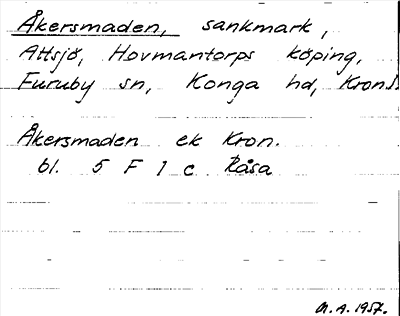 Åkersmaden, sankmark,
Attsjö, Hovmantorps köping,
Furuby sn, Konga hd, Kron.
Åkersmaden ek Kron.
bl. 5 F 1 c Råsa
M.A. 1957.